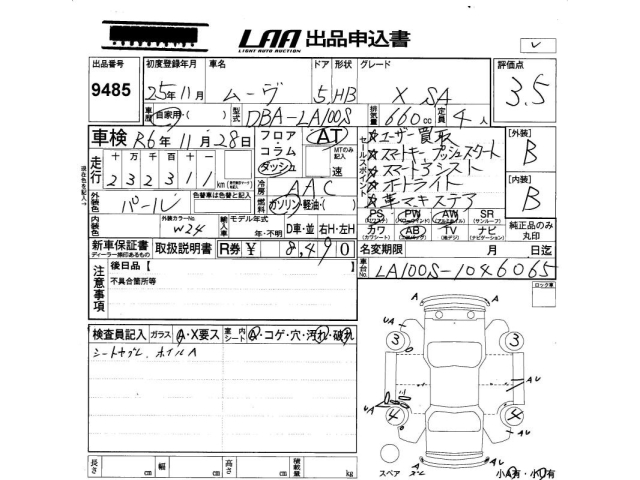 LAA 出品申込書
LIGHT AUTO AUCTION
出品番号 初度登録年月 車名 ドア 形状 グレード 評価点
9485 25年11月 ムーヴ 5 HB X SA 3.5
車歴 自家用・( ) 型式 DBA-LA100S 排気量 660cc 定員 4人
車検 R6年11月28日 フロア・コラム ダッシュ AT MTのみ記入 速
セールスポイント
☆ユーザー買取
☆スマートキー プッシュスタート
☆スマートアシスト
☆オートライト
[外装] B
[内装] B
走行 十万千百十一
232311 km
冷房 AAC
外装色 パール 色替車は色替と記入
燃料 ガソリン・軽油・( )
内装色 外装カラーNo. W24 輸入車 モデル年式 年・不明 D車・並 右H・左H
PS PW AW SR
(パワステ) (パワーウインド) (アルミホイル) (サンルーフ)
カワ AB TV ナビ
(カワシート) (エアバック) (テレビ) (ナビゲーション)
純正品のみ丸印
新車保証書 取扱説明書 R券 ¥ 8,490
ディーラー捺印あるもの
名変期限 月 日迄
車台No. LA100S-1046065
注意事項 後日品【
不具合箇所等
ロック車
検査員記入 ガラス A・X要ス 室内シート A・コゲ・穴・汚れ・破れ
シートヤブレ、ホイルA
UA 3 3
AU
UA 4 4 AU
スペア AU
小A有・小U有
長さ cm 幅 cm 高さ cm 積載量 kg